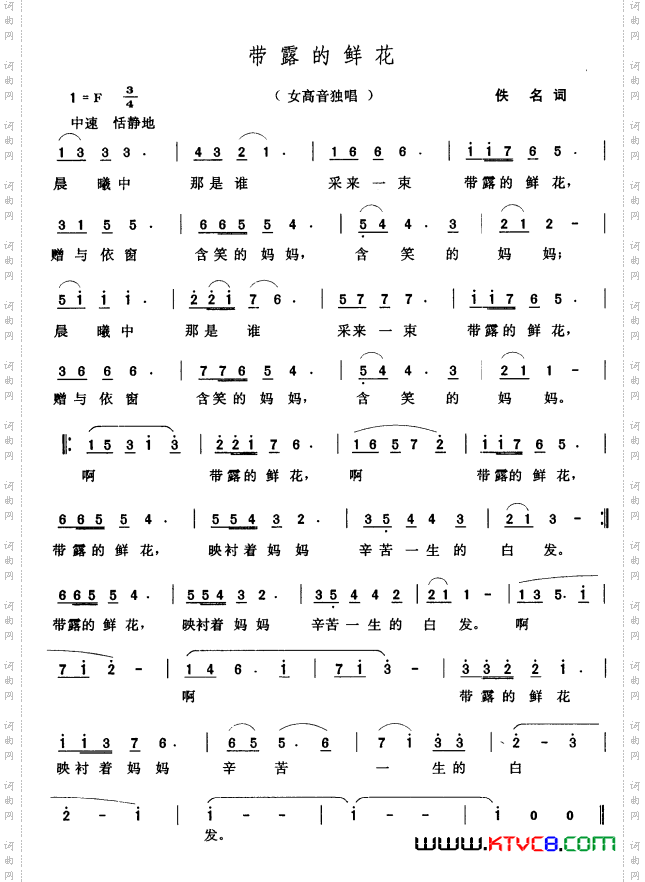 带露的鲜花
1=F 3/4 （女高音独唱） 佚名词
中速 恬静地
1 3 3 3 · | 4 3 2 1 | 1 6 6 6 · | i i 7 6 5 · |
晨曦中 那是谁 采来一束 带露的鲜花，
3 1 5 5 · | 6 6 5 5 4 · | 5 4 4 · 3 | 2 1 2 - |
赠与依窗 含笑的妈妈， 含笑的妈妈；
5 i i i · | 2 2 i 7 6 | 5 7 7 7 · | i i 7 6 5 · |
晨曦中 那是谁 采来一束 带露的鲜花，
3 6 6 6 · | 7 7 6 5 5 · | 5 4 4 · 3 | 2 1 1 - |
赠与依窗 含笑的妈妈， 含笑的妈妈。
|: 1 5 3 i 3 | 2 2 i 7 6 · | 1 6 5 7 2 | i i 7 6 5 · |
啊 带露的鲜花， 啊 带露的鲜花，
6 6 5 5 4 · | 5 5 4 3 2 · | 3 5 4 4 4 · | 2 1 3 - :|
带露的鲜花， 映衬着妈妈 辛苦一生的白发。
6 6 5 5 4 · | 5 5 4 3 2 · | 3 5 4 4 4 · | 2 1 1 - | 1 3 5 · i |
带露的鲜花， 映衬着妈妈 辛苦一生的白发。 啊
7 i 2 - | 1 4 6 · i | 7 i 3 - | 3 3 2 2 i · |
啊 带露的鲜花
i i 3 7 6 · | 6 5 5 · 6 | 7 i 3 3 | 2 - 3 |
映衬着妈妈 辛苦 一生的白
2 - i | i - - | i - - | i 0 0 ‖
发。
www.KTVC8.com
词曲网
词曲网
词曲网
词曲网
词曲网
词曲网
词曲网
词曲网
词曲网
词曲网
词曲网
词曲网
词曲网
词曲网